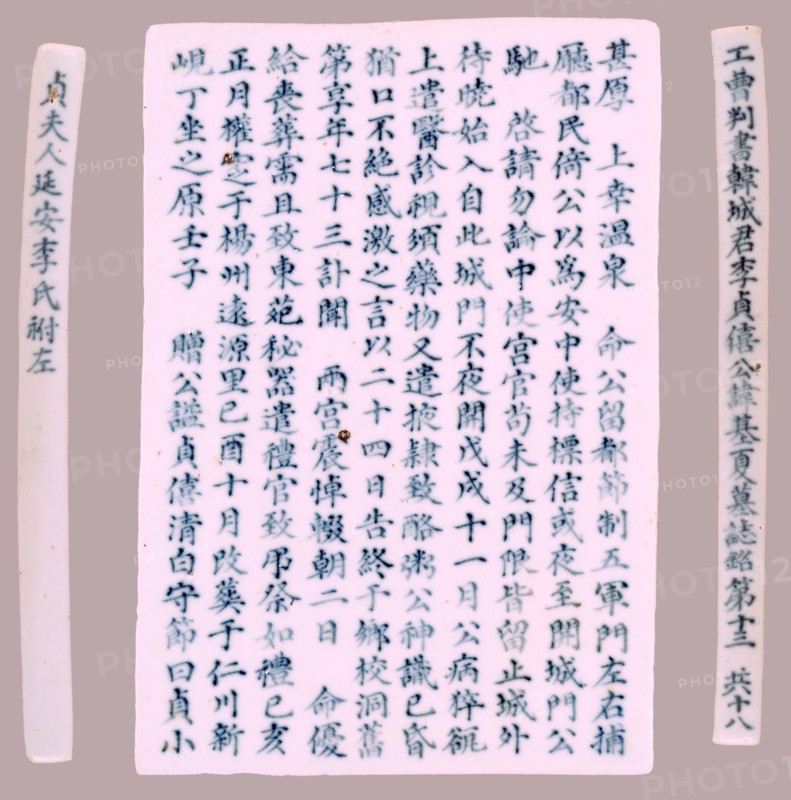 工曹判書韓城君李貞僖公諱基夏墓誌銘第十三 共十八
甚厚 上幸溫泉 命公留都節制五軍門左右捕
廳都民倚公以爲安中使持標信或夜至開城門公
馳 啓請勿論中使宮官苟未及門限皆留止城外
待曉始入自此城門不夜開戊戌十一月公病猝㞃
上遣醫診視須藥物又遣掖隷致酪粥公神識已昏
猶口不絶感激之言以二十四日告終于鄉校洞舊
第享年七十三訃聞 兩宮震悼輟朝二日 命優
給喪葬需且致東苑秘器遣禮官致吊祭如禮已亥
正月權窆于楊州遠源里已酉十月改葬于仁川新
峴丁坐之原壬子 贈公謚貞僖清白守節曰貞小
貞夫人延安李氏祔左